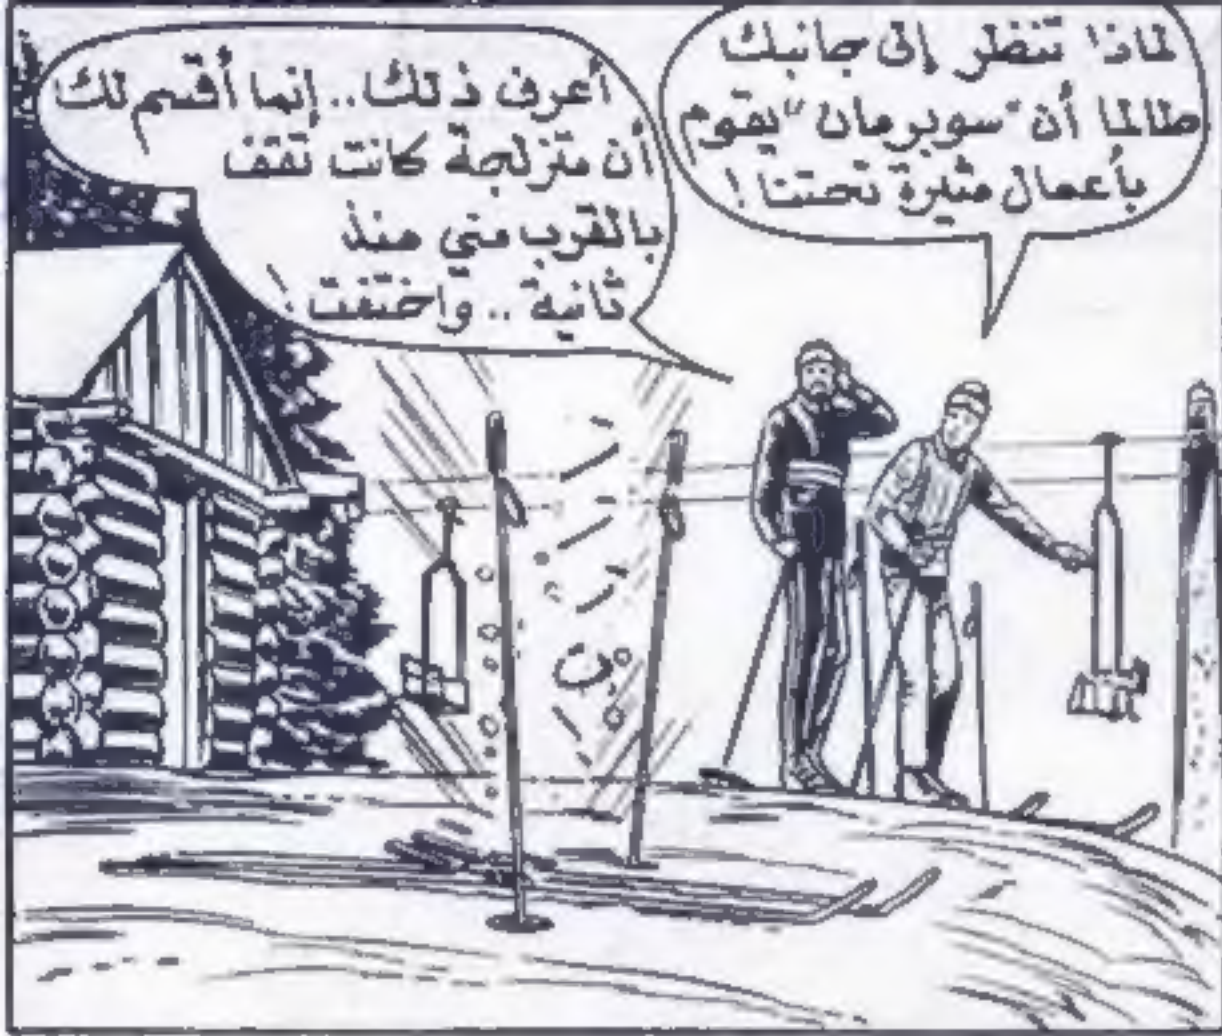 لماذا تنظر إلى جانبك
طالما أن "سوبرمان" يقوم
بأعمال مثيرة تحتنا !
أعرف ذلك.. إنما أقسم لك
أن متزلجة كانت تقف
بالقرب مني منذ
ثانية .. واختفت !